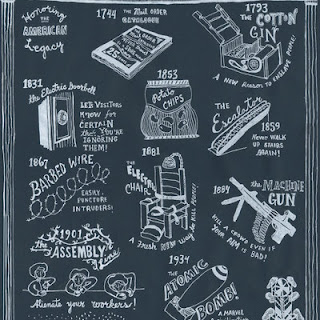 Honoring
the
AMERICAN
Legacy
1744 The Mail ORDER
CATALOGUE
1793
THE COTTON
GIN
A New Reason to ENSLAVE MORE!
1831
the Electric Doorbell
LET VISITORS
KNOW FOR
CERTAIN
THAT YOU'RE
IGNORING
THEM!
1853
Potato
CHIPS
THE
Escalator
1859
Never WALK
UP STAIRS
AGAIN!
1867
BARBED WIRE
EASILY
PUNCTURE
INTRUDERS!
1881
THE ELECTRIC
CHAIR
A Fresh NEW way to KILL
1884
the MACHINE
GUN
KILL A CROWD EVEN IF
YOUR AIM IS BAD!
1901
the ASSEMBLY
Line
Alienate your workers!
1934
THE ATOMIC
BOMB!
A MARVEL